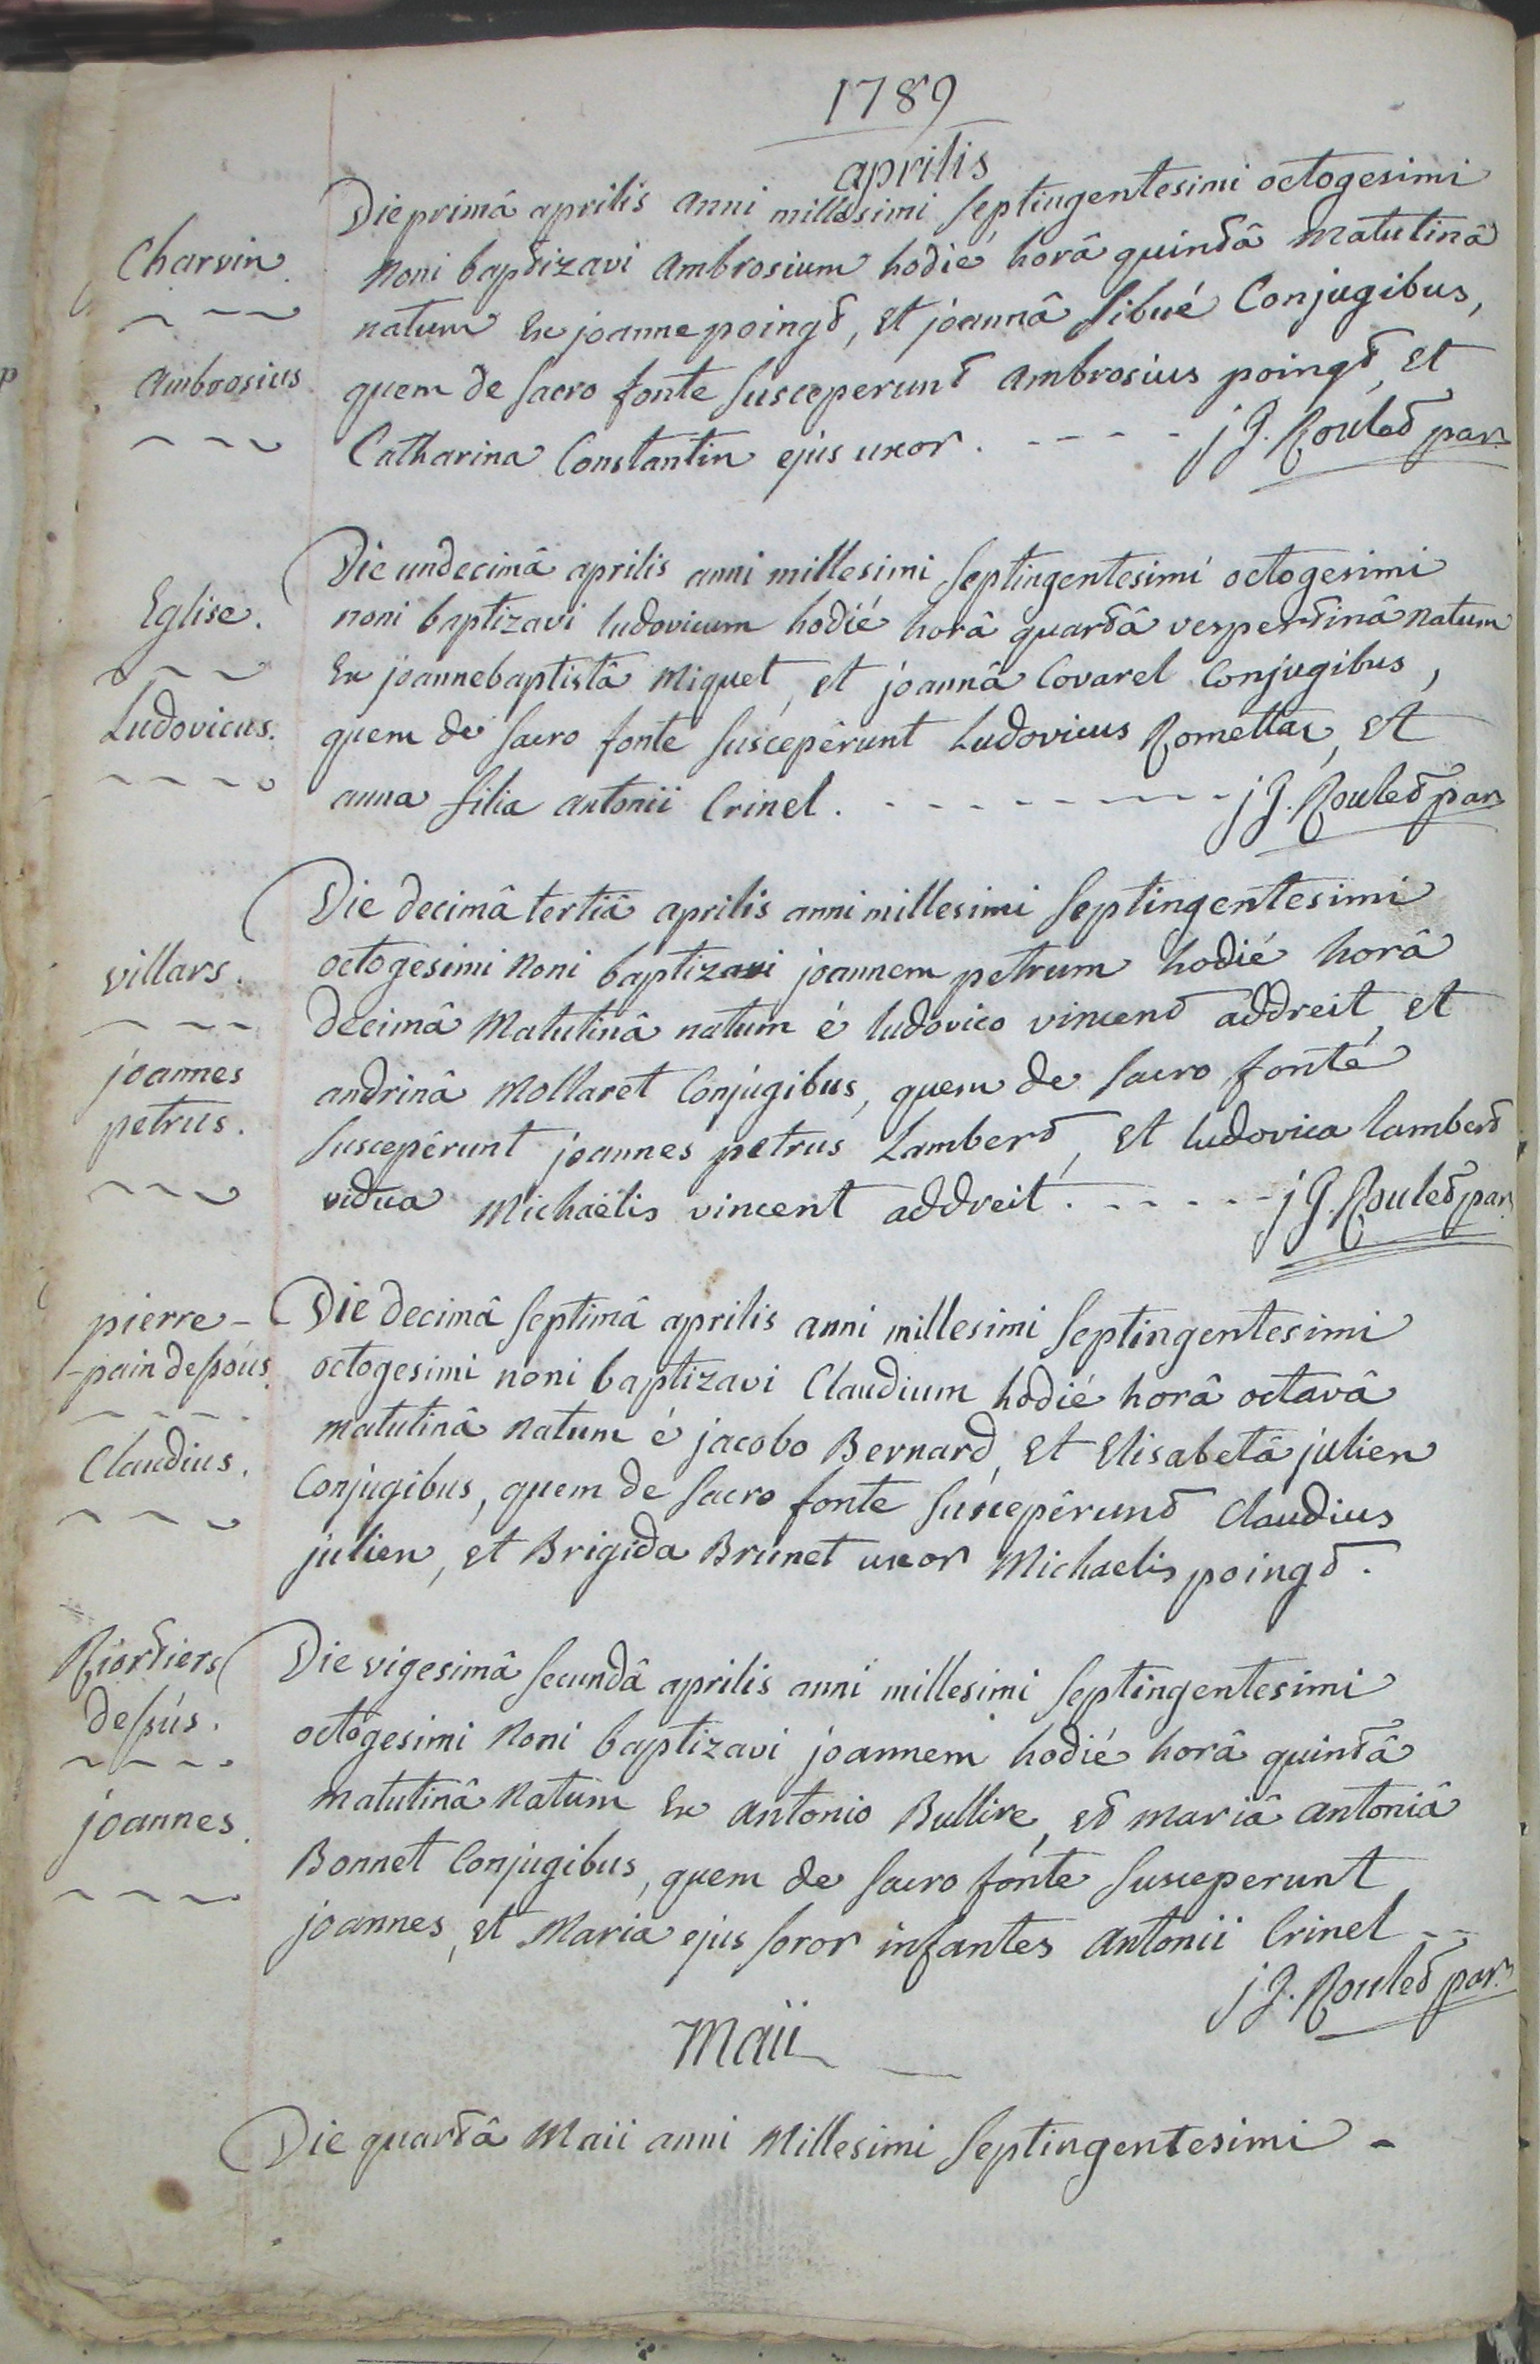 1789
aprilis
Charvin.
Ambrosius
Die primâ aprilis anni millesimi septingentesimi octogesimi
noni baptizavi Ambrosium hodié horâ quintâ matutinâ
natum Ex joanne poingt, et joannâ Sibué Conjugibus,
quem de sacro fonte susceperunt Ambrosius poingt, et
Catharina Constantin ejus uxor. - - - - j G. Roulet par.
Eglise.
Ludovicus.
Die undecimâ aprilis anni millesimi septingentesimi octogesimi
noni baptizavi ludovicum hodié horâ quartâ vespertinâ natum
Ex joanne baptistâ Miquet, et joannâ Covarel Conjugibus,
quem de sacro fonte suscepêrunt Ludovicus Romettaz, et
anna filia antonii Crinel. - - - - - - - - j G. Roulet par
villars.
joannes
petrus.
Die decimâ tertiâ aprilis anni millesimi septingentesimi
octogesimi noni baptizavi joannem petrum hodié horâ
decimâ Matutinâ natum é ludovico vincent addreit, et
andrinâ Mollaret Conjugibus, quem de sacro fonté
suscepêrunt joannes petrus Lambert, et ludovica lambert
vidua Michaëlis vincent addreit. - - - - - j G. Roulet par.
pierre -
- pain dessous.
Claudius.
Die decimâ septimâ aprilis anni millesimi septingentesimi
octogesimi noni baptizavi Claudium hodié horâ octavâ
matutinâ natum é jacobo Bernard, et Elisabetâ julien
Conjugibus, quem de sacro fonte suscepêrunt Claudius
julien, et Brigida Brunet uxor Michaelis poingt.
Riortiers
dessus.
joannes.
Die vigesimâ secundâ aprilis anni millesimi septingentesimi
octogesimi noni baptizavi joannem hodié horâ quintâ
matutinâ natum Ex antonio Bullire, et mariâ antoniâ
Bonnet Conjugibus, quem de sacro fonte susceperunt
joannes, et Maria ejus soror infantes antonii Crinel - -
j G. Roulet par.
Maii
Die quartâ Maii anni Millesimi septingentesimi -